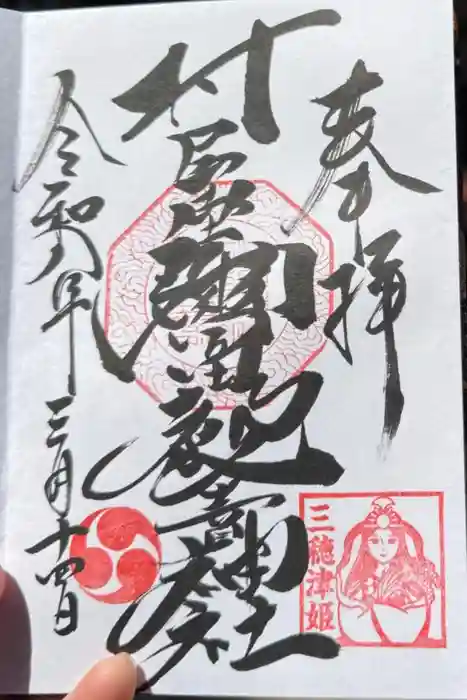 奉拝
三穂津姫
村屋坐彌冨都比賣神社
令和八年三月十四日